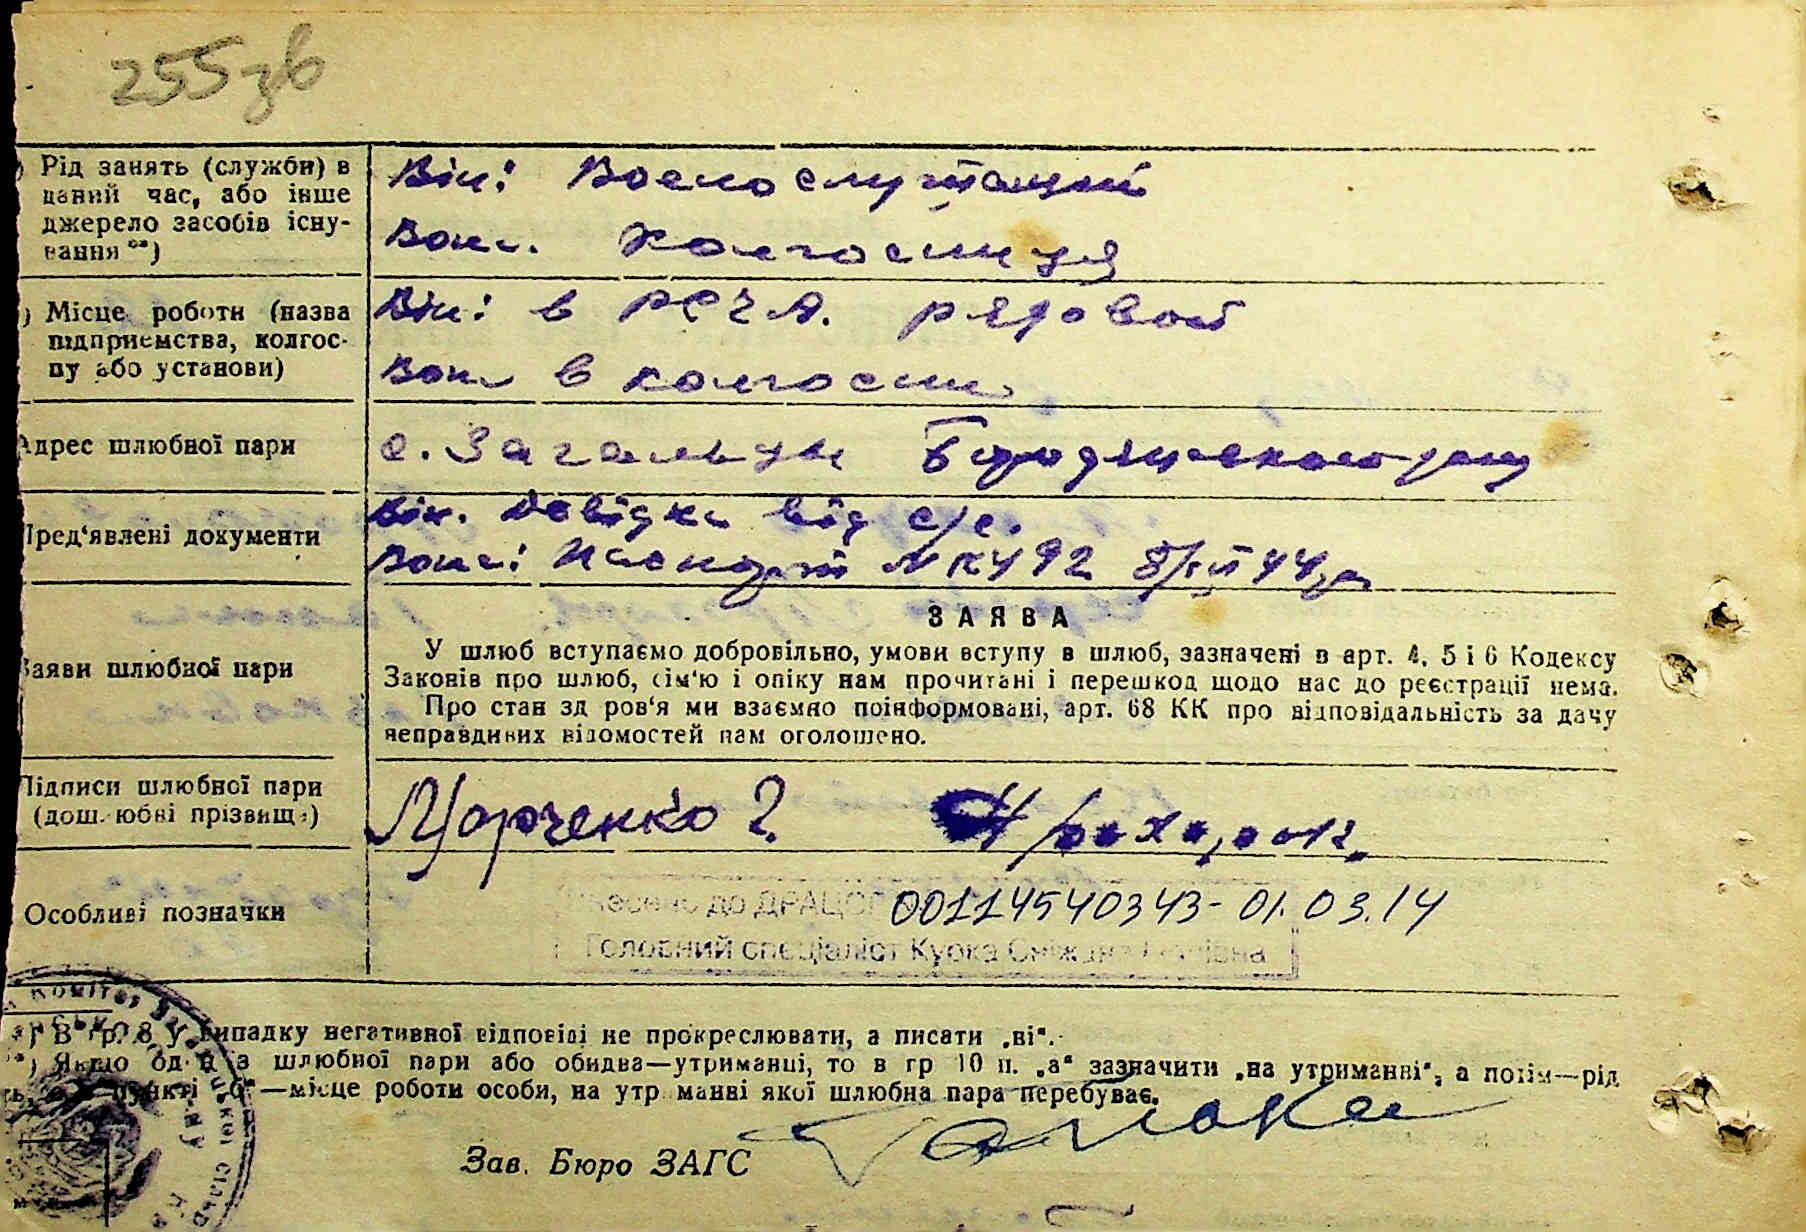 255зв
Рід занять (служби) в
даний час, або інше
джерело засобів існу-
вання **)
Він: Военослужащий
Вона. колгоспниця
Місце роботи (назва
підприємства, колгос-
пу або установи)
Він: в РСЧА. рядовой
Вона в колгоспі
Адрес шлюбної пари
с. Загальці Бородянського рай
Пред'явлені документи
Він. Довідка від с/с.
Вона: Паспорт №
ЗАЯВА
Заяви шлюбної пари
У шлюб вступаємо добровільно, умови вступу в шлюб, зазначені в арт. 4, 5 і 6 Кодексу
Законів про шлюб, сім'ю і опіку нам прочитані і перешкод щодо нас до реєстрації нема.
Про стан здоров'я ми взаємно поінформовані, арт. 68 КК про відповідальність за дачу
неправдивих відомостей нам оголошено.
Підписи шлюбної пари
(дошлюбні прізвища)
Марченко Г.
Особливі позначки
внесено до ДРАЦСГ 00114540343- 01.03.14
Головний спеціаліст Курка Сніжана
*) В гр. 8 у випадку негативної відповіді не прокреслювати, а писати „ні“.
**) Якщо один із шлюбної пари або обидва—утриманці, то в гр 10 п. „а“ зазначити „на утриманні“, а потім—рід
пункті „б“—місце роботи особи, на утриманні якої шлюбна пара перебуває.
Зав. Бюро ЗАГС